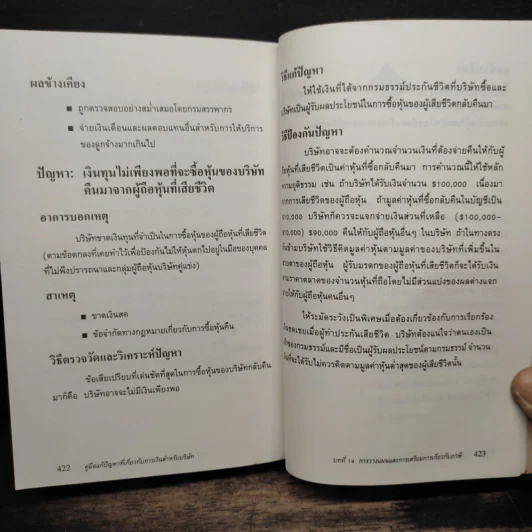 ผลข้างเคียง
■ ถูกตรวจสอบอย่างสม่ำเสมอโดยกรมสรรพากร
■ จ่ายเงินเดือนและผลตอบแทนอื่นสำหรับการให้บริการ
ของลูกจ้างมากเกินไป
ปัญหา: เงินทุนไม่เพียงพอที่จะซื้อหุ้นของบริษัท
คืนมาจากผู้ถือหุ้นที่เสียชีวิต
อาการบอกเหตุ
บริษัทขาดเงินทุนที่จำเป็นในการซื้อหุ้นของผู้ถือหุ้นที่เสียชีวิต
(ตามข้อตกลงที่เคยทำไว้เพื่อป้องกันไม่ให้หุ้นตกไปอยู่ในมือของบุคคล
ที่ไม่พึงปรารถนาและกลุ่มผู้ถือหุ้นบริษัทคู่แข่ง)
สาเหตุ
■ ขาดเงินสด
■ ข้อจำกัดทางกฎหมายเกี่ยวกับการซื้อหุ้นคืน
วิธีตรวจวัดและวิเคราะห์ปัญหา
ข้อเสียเปรียบที่เด่นชัดที่สุดในการซื้อหุ้นของบริษัทกลับคืน
มาก็คือ บริษัทอาจจะไม่มีเงินเพียงพอ
422 คู่มือแก้ปัญหาที่เกี่ยวกับการเงินสำหรับบริษัท
วิธีแก้ปัญหา
ให้ใช้เงินที่ได้จากกรมธรรม์ประกันชีวิตที่บริษัทซื้อและ
บริษัทเป็นผู้รับผลประโยชน์ในการซื้อหุ้นของผู้เสียชีวิตกลับคืนมา
วิธีป้องกันปัญหา
บริษัทอาจจะต้องคำนวณจำนวนเงินที่ต้องจ่ายคืนให้กับผู้
ถือหุ้นที่เสียชีวิตเป็นค่าหุ้นที่ซื้อกลับคืนมา การคำนวณนี้ให้ใช้หลัก
ความยุติธรรม เช่น ถ้าบริษัทได้รับเงินจำนวน $100,000 เนื่องมา
จากการเสียชีวิตของผู้ถือหุ้น ถ้ามูลค่าหุ้นที่ซื้อกลับคืนในบัญชีเป็น
$10,000 บริษัทก็ควรจะแจกจ่ายเงินส่วนที่เหลือ ($100,000-
$10,000) $90,000 คืนให้กับผู้ถือหุ้นอื่นๆ ในบริษัท ถ้าในทางตรง
กันข้ามบริษัทใช้วิธีคิดมูลค่าหุ้นตามมูลค่าของบริษัทที่เพิ่มขึ้นใน
ของผู้ถือหุ้น ผู้รับมรดกของผู้ถือหุ้นที่เสียชีวิตก็จะได้รับเงิน
ตามราคาตลาดของจำนวนหุ้นที่ถือโดยไม่มีส่วนแบ่งของผลต่างแจก
จ่ายให้กับผู้ถือหุ้นคนอื่นๆ
ให้ระมัดระวังเป็นพิเศษเมื่อต้องเกี่ยวข้องกับการเรียกร้อง
เงินชดเชยเมื่อผู้ทำประกันเสียชีวิต บริษัทต้องแน่ใจว่าตนเองเป็น
ของกรมธรรม์และมีชื่อเป็นผู้รับผลประโยชน์ตามกรมธรรม์ จำนวน
เงินที่จะได้รับไม่ควรคิดตามมูลค่าหุ้นต่ำสุดของผู้เสียชีวิตนั้น
บทที่ 14 การวางแผนและการเตรียมการเกี่ยวกับภาษี 423